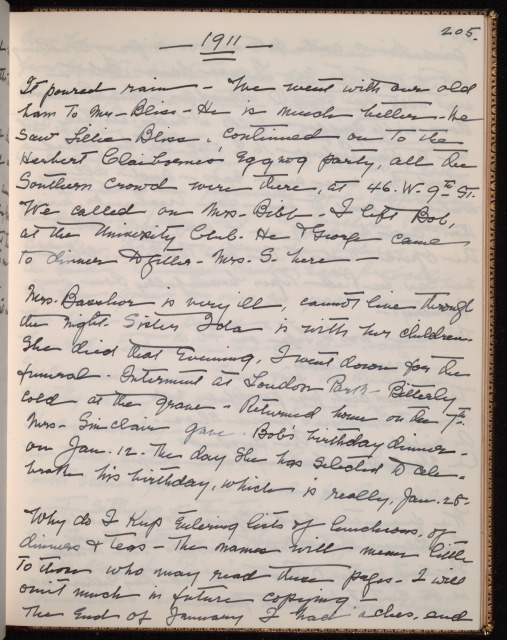 205.
— 1911 —
It poured rain - We went with our old
ham to Mrs - Bliss - He is much better - We
saw Lillie Bliss. Continued on to the
Herbert Claiborne's Eggnog party, all the
Southern crowd were there, at 46. W. 9th St.
We called on Mrs - Bibb - I left Bob,
at the University Club. He & George came
to dinner together - Mrs. S. here —
Mrs. Basshor is very ill, cannot live through
the night. Sister Ida is with her children.
She died that Evening, I went down for the
funeral. Interment at Loudon Park - Bitterly
cold at the grave - Returned home on the 7th.
Mrs - Sinclair gave Bob's birthday dinner -
on Jan. 12. The day she has selected to cele-
brate his birthday, which is really, Jan. 28 -
Why do I keep Entering lists of luncheons, of
dinners & Teas - The names will mean little
to those who may read these pages - I will
omit much in future copying —
The End of January I had aches, and